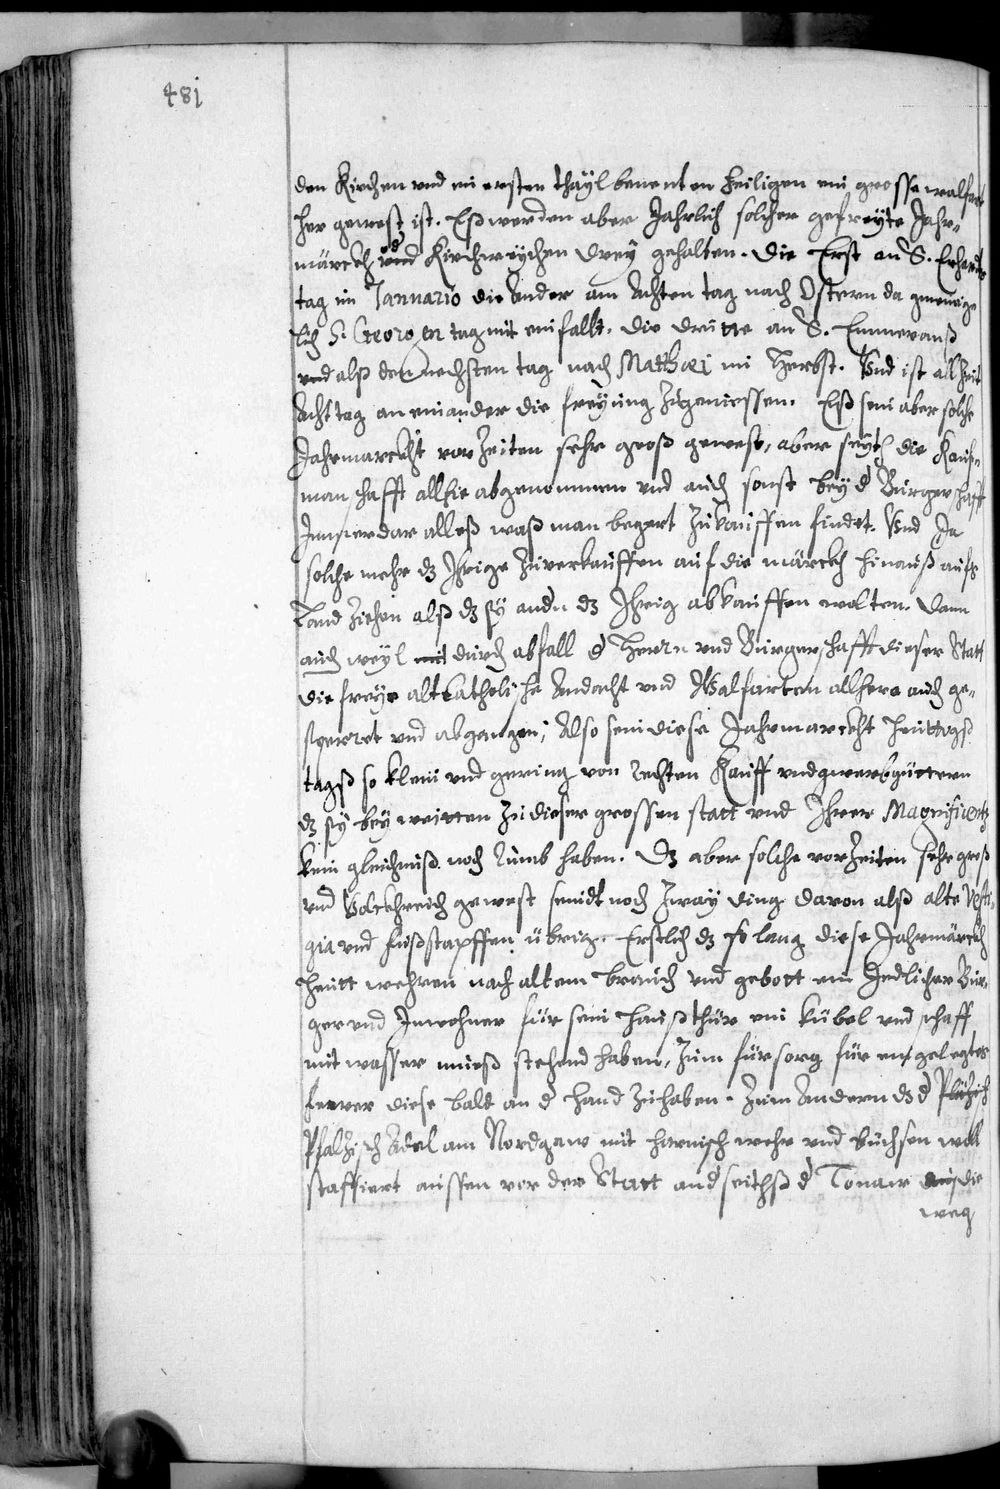 481
den Kirchen vnd im ersten thayl benenten heiligen ein grosse walfart
her gewest ist. Eß werden aber Jahrlich solcher gefreyte Jahr-
märckh vnd Kirchweychen drey gehalten. Die Erst an S. Erhardts
tag im Januario die Ander am Achten tag nach Ostern da gmeinig-
lich S. Georgen tag mit einfallt. die dritte an S. Emmeranß
vnd alß den nechsten tag nach Matthæi im Herbst. Vnd ist allzeit
Acht tag an einander die freyung zugeniessen. Eß sein aber solche
Jahrmarckht vor Zeiten sehr groß gewest, aber seyt die Kauf-
manschafft allhie abgenommen vnd auch sonst bey d Burgerschafft
Immerdar alleß waß man begert zukauffen findt. Vnd Je
solche mehr dz Ihrige zuverkauffen auf die märckh hinauß aufs
Land ziehen alß dz sy andn dz Ihrig abkauffen wolten. Dann
auch weyl mit durch abfall d Herrn vnd Burgerschafft dieser Statt
die freye alt Catholische Andacht vnd Walfarten allhero auch ge-
sperret vnd abgangen; Also sein diese Jahrmarckht heuttigß
tagß so klein vnd gering von rechten Kauff vnd gwerbgüttern
dz sy bey weitten zu dieser grossen statt vnd Ihrer Magnificentz
kein gleichnuß noch Rumb haben. Dz aber solche vor Zeiten sehr groß
vnd Volckhreich gewest seindt noch zway ding davon alß alte Vesti-
gia vnd fußstapffen übrig. Erstlich dz so lang diese Jahrmärckh
heutt wehren nach altem brauch vnd gebott ein Jedlicher Bur-
ger vnd Inwohner für sein haußthür ein kübel vnd schaff
mit wasser mueß stehend haben, zum fürsorg für eingelegtes
fewer diese bald an d hand zuhaben. Zum Andern dz d
Pfaltzisch Adel am Nordgaw mit harnisch wehr vnd büchsen woll
staffiert aussen vor der Statt andseithß d Tonaw die
weg